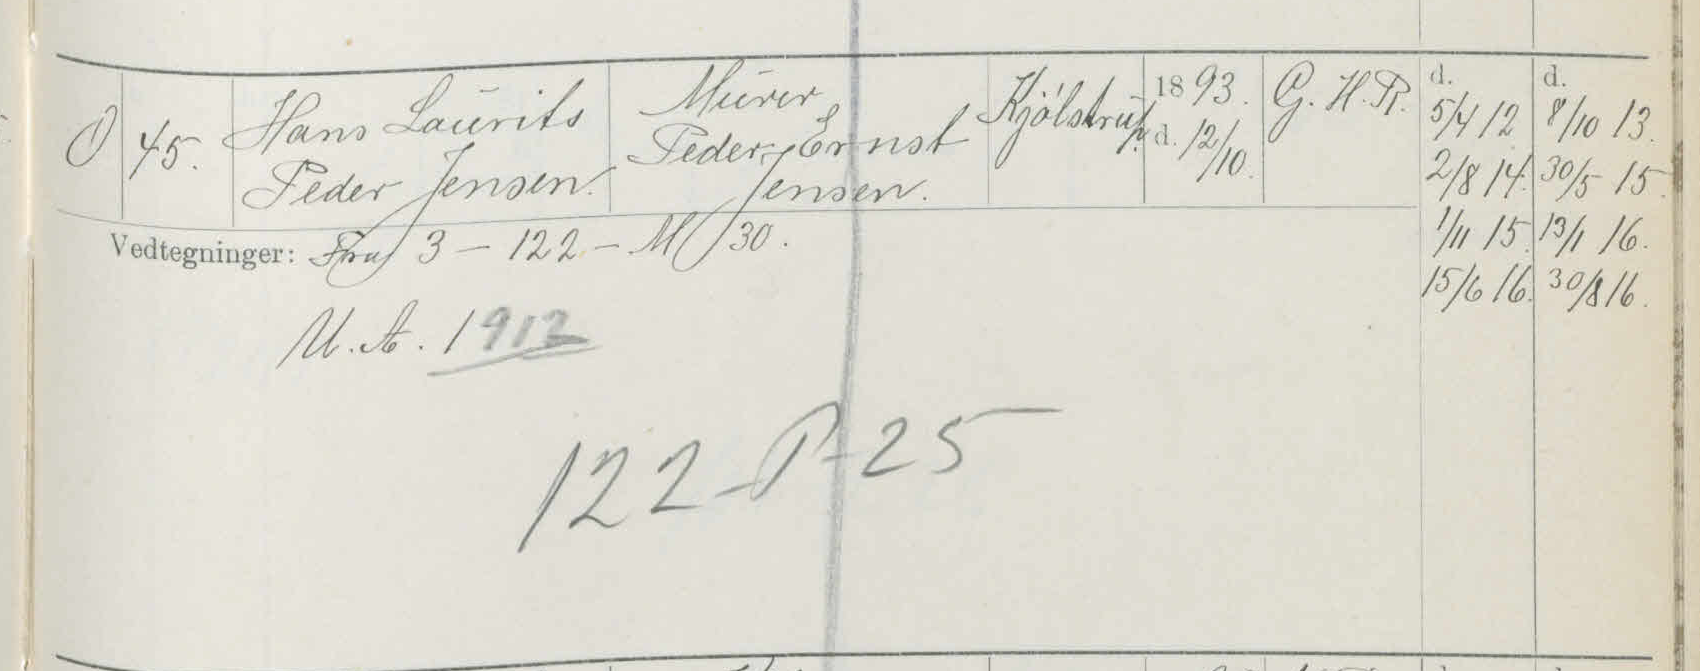 O 45. Hans Laurits Peder Jensen. Murer Peder Ernst Jensen. Kjölstrup. 1893. d. 12/10. G. H. R. d. 5/4 12 d. 8/10 13.
2/8 14. 30/5 15.
1/11 15. 13/1 16.
15/6 16. 30/8 16.
Vedtegninger: Fra 3 - 122 - M 30.
U. A. 1912
122-P-25